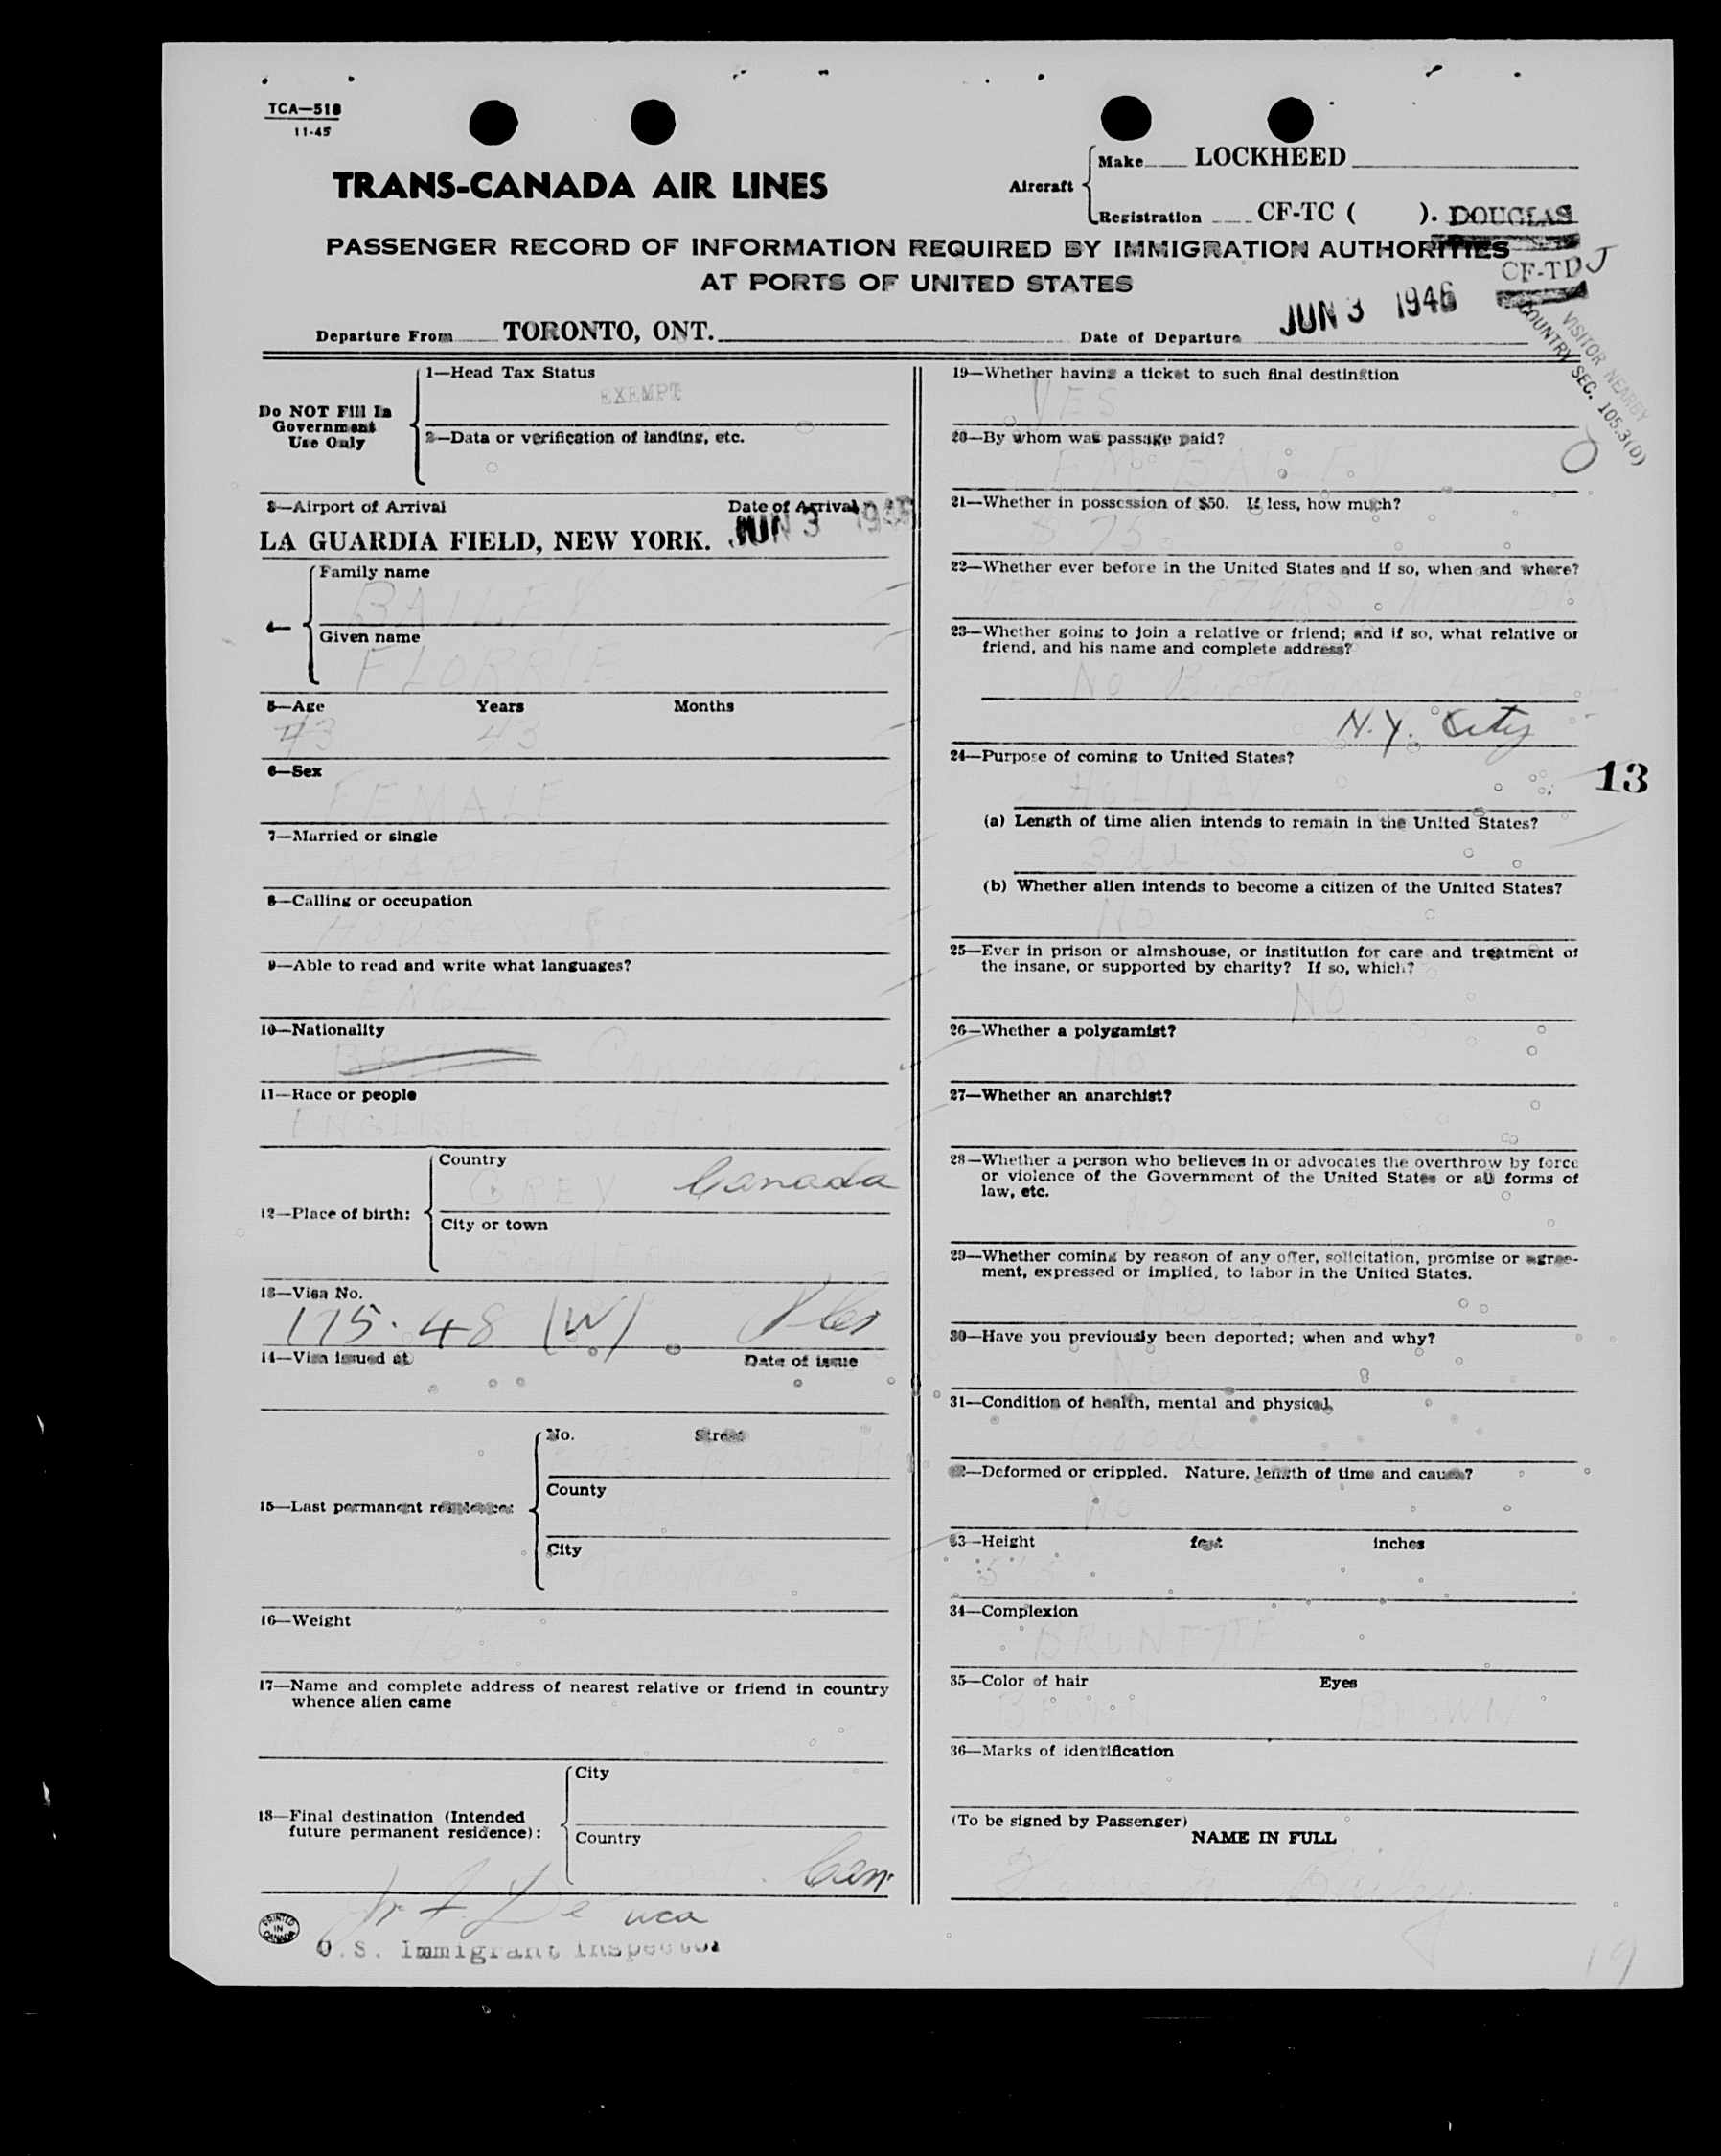 TCA—518
11-45
TRANS-CANADA AIR LINES
Aircraft
Make LOCKHEED
Registration CF-TC ( ). DOUGLAS
PASSENGER RECORD OF INFORMATION REQUIRED BY IMMIGRATION AUTHORITIES
CF-TDJ
AT PORTS OF UNITED STATES
Departure From TORONTO, ONT. Date of Departure JUN 3 1946
VISITOR NEARBY
COUNTRY SEC. 105.3(D)
Do NOT Fill In
Government
Use Only
1—Head Tax Status
EXEMPT
2—Data or verification of landing, etc.
3—Airport of Arrival Date of Arrival
LA GUARDIA FIELD, NEW YORK. JUN 3 1946
4—
Family name
BAILEY
Given name
FLORRIE
5—Age Years Months
43 43
6—Sex
FEMALE
7—Married or single
MARRIED
8—Calling or occupation
HOUSEWIFE
9—Able to read and write what languages?
ENGLISH
10—Nationality
Canadian
11—Race or people
ENGLISH
12—Place of birth:
Country
GREY Canada
City or town
13—Visa No.
175.48 (W)
14—Visa issued at Date of issue
15—Last permanent residence:
No. Street
County
City
TORONTO
16—Weight
17—Name and complete address of nearest relative or friend in country
whence alien came
18—Final destination (Intended
future permanent residence):
City
Country
Can.
U.S. Immigrant Inspector
PRINTED
IN
CANADA
19—Whether having a ticket to such final destination
YES
20—By whom was passage paid?
BAILEY
21—Whether in possession of $50. If less, how much?
$ 75.
22—Whether ever before in the United States and if so, when and where?
YES NEW YORK
23—Whether going to join a relative or friend; and if so, what relative or
friend, and his name and complete address?
No HOTEL
N.Y. City
24—Purpose of coming to United States?
HOLIDAY
13
(a) Length of time alien intends to remain in the United States?
3 days
(b) Whether alien intends to become a citizen of the United States?
No
25—Ever in prison or almshouse, or institution for care and treatment of
the insane, or supported by charity? If so, which?
NO
26—Whether a polygamist?
No
27—Whether an anarchist?
No
28—Whether a person who believes in or advocates the overthrow by force
or violence of the Government of the United States or all forms of
law, etc.
No
29—Whether coming by reason of any offer, solicitation, promise or agree-
ment, expressed or implied, to labor in the United States.
No
30—Have you previously been deported; when and why?
No
31—Condition of health, mental and physical.
Good
32—Deformed or crippled. Nature, length of time and cause?
No
33—Height feet inches
34—Complexion
BRUNETTE
35—Color of hair Eyes
BROWN BROWN
36—Marks of identification
(To be signed by Passenger)
NAME IN FULL
Bailey
19